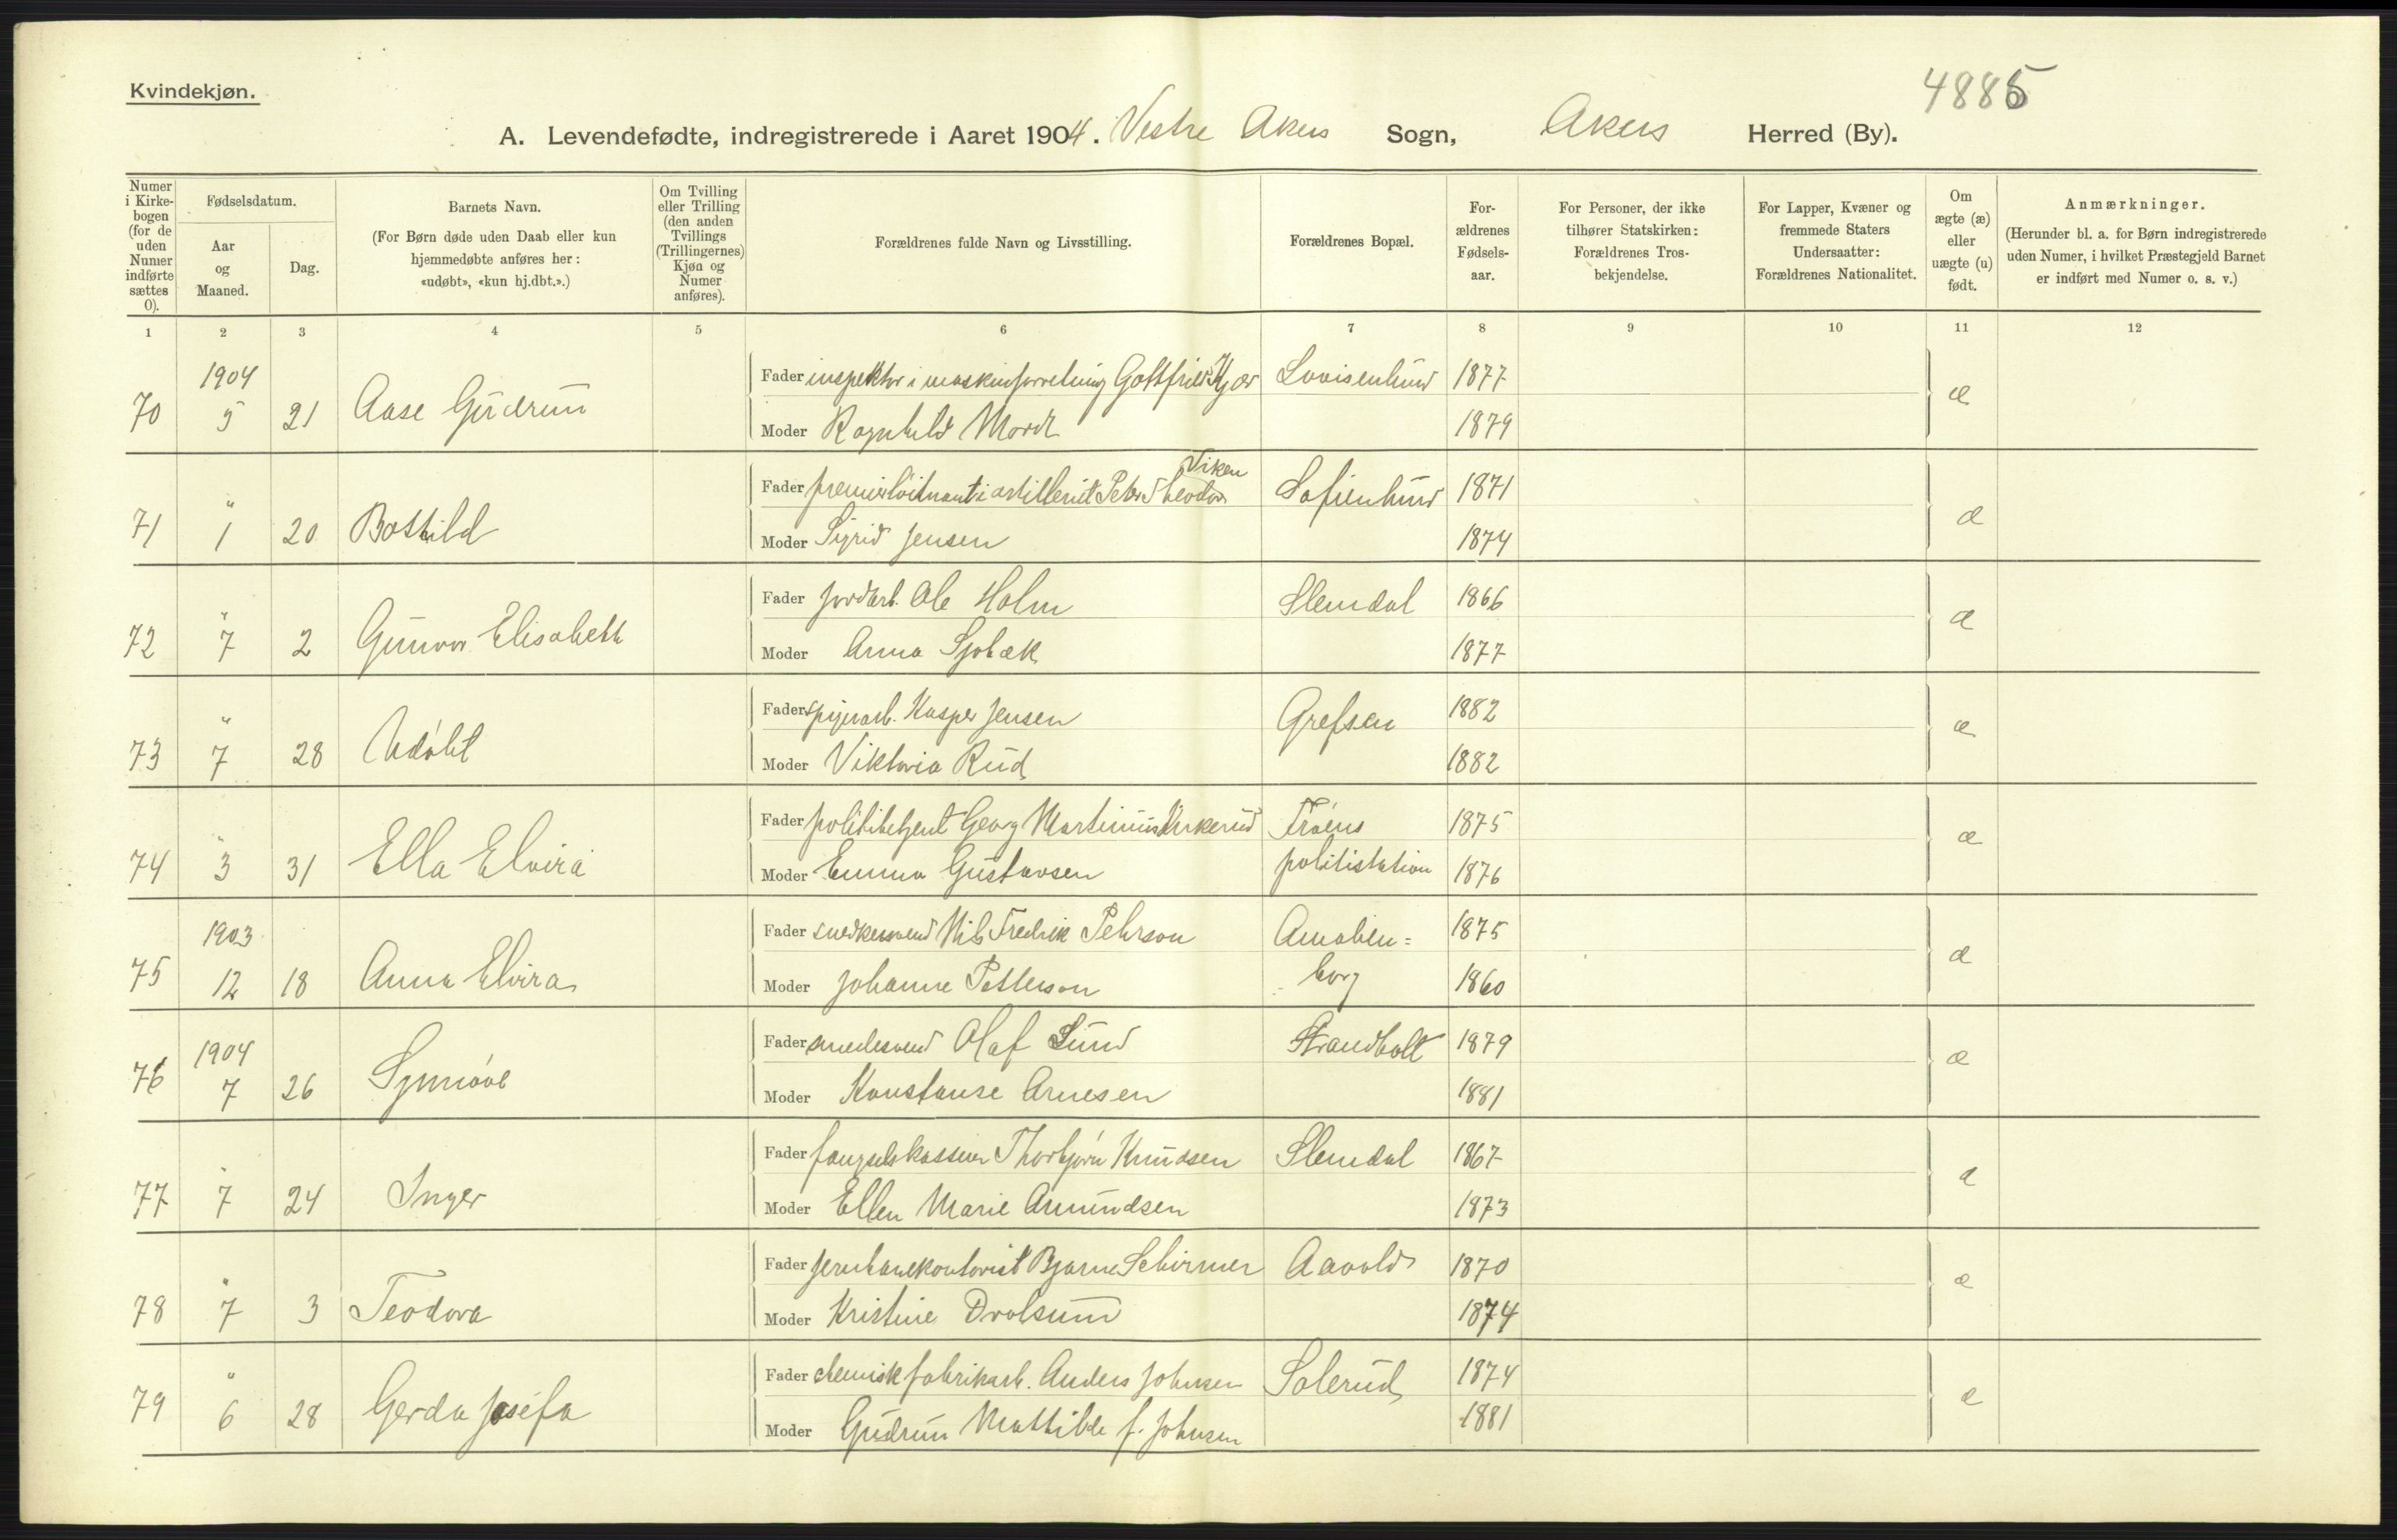 4885
Kvindekjøn.
A. Levendefødte, indregistrerede i Aaret 1904. Vestre Akers Sogn, Akers Herred (By).
Numer i Kirkebogen (for de uden Numer indførte sættes 0).
Fødselsdatum.
Aar og Maaned.
Dag.
Barnets Navn.
(For Børn døde uden Daab eller kun hjemmedøbte anføres her: «udøbt», «kun hj.dbt.».)
Om Tvilling eller Trilling (den anden Tvillings (Trillingernes) Kjøn og Numer anføres).
Forældrenes fulde Navn og Livsstilling.
Forældrenes Bopæl.
Forældrenes Fødselsaar.
For Personer, der ikke tilhører Statskirken: Forældrenes Trosbekjendelse.
For Lapper, Kvæner og fremmede Staters Undersaatter: Forældrenes Nationalitet.
Om ægte (æ) eller uægte (u) født.
Anmærkninger.
(Herunder bl. a. for Børn indregistrerede uden Numer, i hvilket Præstegjeld Barnet er indført med Numer o. s. v.)
1 2 3 4 5 6 7 8 9 10 11 12
70 1904 5 21 Aase Gudrun
Fader inspektør i maskinforretning Gottfried Kjær Lovisenlund 1877 æ
Moder Ragnhild Mordt 1879
71 " 1 20 Bothild
Fader premierløitnant i artilleriet Peter Theodor Viken Sofienlund 1871 æ
Moder Sigrid Jensen 1874
72 " 7 2 Gunvor Elisabeth
Fader jordarb. Ole Holm Slemdal 1866 æ
Moder Anna Sjøbæk 1877
73 " 7 28 Udøbt
Fader spigerarb. Kasper Jensen Grefsen 1882 æ
Moder Viktoria Rud 1882
74 " 3 31 Ella Elvira
Fader politibetjent Georg Martinius Kirkerud Frøens 1875 æ
Moder Emma Gustavsen politistation 1876
75 1903 12 18 Anna Elvira
Fader snedkersvend Nils Fredrik Pehrson Amalien= 1875 æ
Moder Johanne Petterson borg 1860
76 1904 7 26 Synnøve
Fader smedesvend Olaf Lund Strandholt 1879 æ
Moder Konstanse Arnesen 1881
77 " 7 24 Inger
Fader fængselskasserer Thorbjørn Knudsen Slemdal 1867 æ
Moder Ellen Marie Amundsen 1873
78 " 7 3 Teodora
Fader jernbanekontorist Bjarne Schirmer Aavold 1870 æ
Moder Kristine Drolsum 1874
79 " 6 28 Gerda Josefa
Fader chemisk fabrikarb. Anders Johnsen Solerud 1874 æ
Moder Gudrun Mathilde f. Johnsen 1881